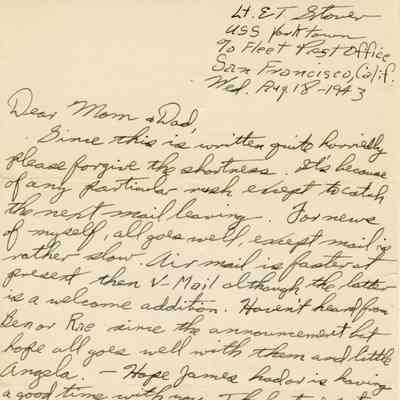 Lt. E T Stover
USS Yorktown
% Fleet Post Office
San Francisco, Calif.
Wed. Aug. 18 - 1943
Dear Mom & Dad,
Since this is written quite horriedly
please forgive the shortness. It's because
of any particular rush except to catch
the next mail leaving. For news
of myself, all goes well, except mail is
rather slow. Air mail is faster at
present then V-Mail although the latter
is a welcome addition. Haven't heard from
Ben or Rae since the announcement but
hope all goes well with them and little
Angela. - Hope James has or is having
a good time with you.